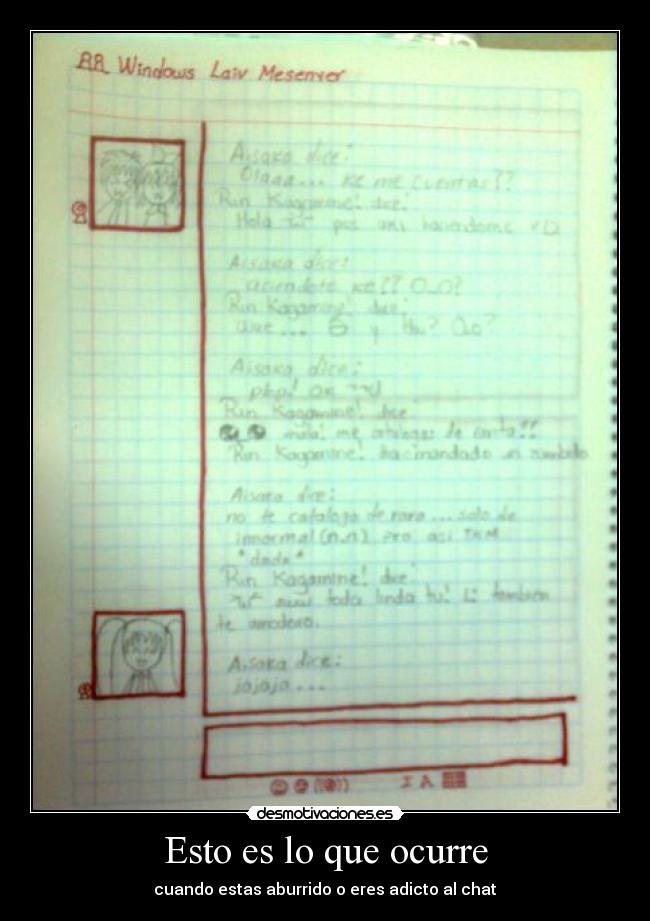 Windows Laiv Mesenyer
Aisaka dice:
Olaaa... ke me cuentas??
Rin Kagamine! dice:
Hola pss aki haciendome xD
Aisaka dice:
aciendote ke?? O_O?
Rin Kagamine! dice:
y tku? O.o?
Aisaka dice:
Rin Kagamine! dice:
mala! me catalogas de
Rin Kagamine! ha mandado un zumbido
Aisaka dice:
no te catalogo de rara... solo de
innormal (n.n) pro asi TKM
Rin Kagamine! dice:
toda linda tu! también
te amodoro.
Aisaka dice:
jajaja...
desmotivaciones.es
Esto es lo que ocurre
cuando estas aburrido o eres adicto al chat